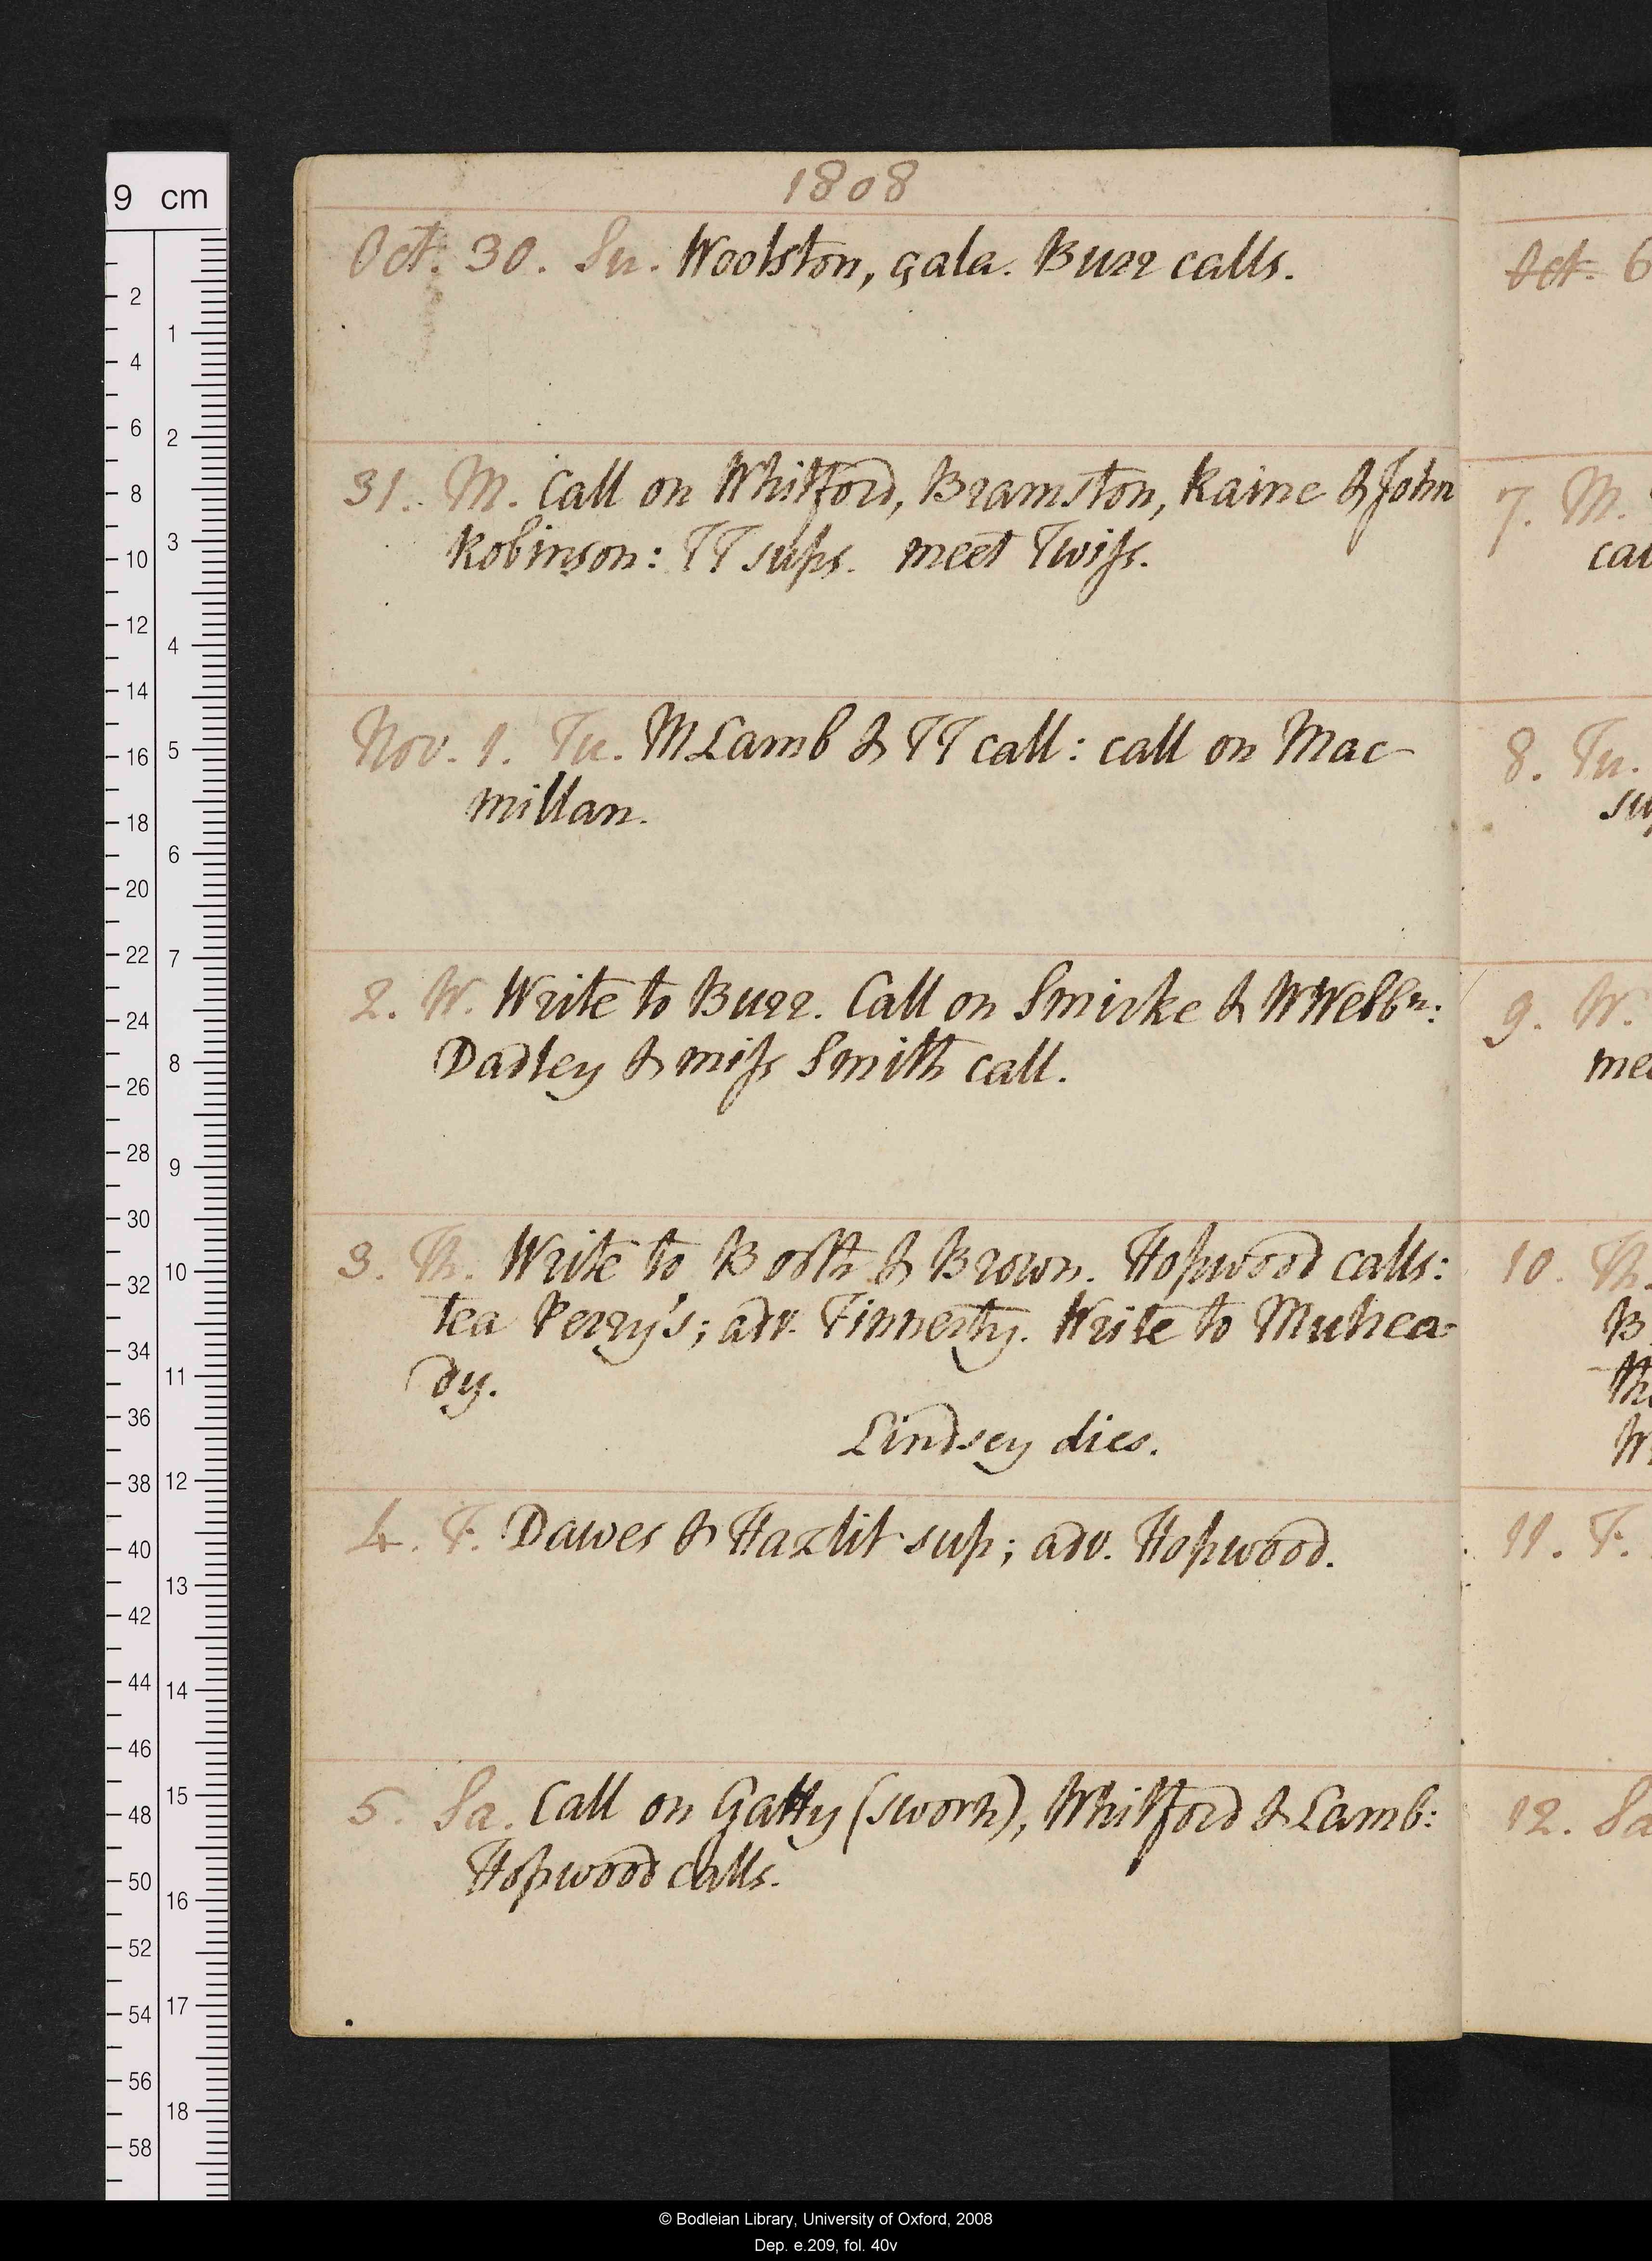 1808
Oct. 30. Su. Woolston, gala. Burr calls.
31. M. Call on Whitford, Bramston, Raine & John
Robinson: TT sups. meet Twiss.
Nov. 1. Tu. MLamb & TT call: call on Mac-
millan.
2. W. Write to Burr. Call on Smirke & WWebbr:
Dadley & miss Smith call.
3. Th. Write to Booth & Brown. Hopwood calls:
tea Perry's; adv. Finnerty. Write to Mulrea-
dy.
Lindsey dies.
4. F. Dawes & Hazlit sup; adv. Hopwood.
5. Sa. Call on Gatty (sworn), Whitford & Lamb:
Hopwood calls.
Oct. 6
7. M.
cal
8. Tu.
su
9. W.
mee
10. Th.
B
W
11. F.
12. Sa
9 cm
2
4
6
8
10
12
14
16
18
20
22
24
26
28
30
32
34
36
38
40
42
44
46
48
50
52
54
56
58
1
2
3
4
5
6
7
8
9
10
11
12
13
14
15
16
17
18
© Bodleian Library, University of Oxford, 2008
Dep. e.209, fol. 40v